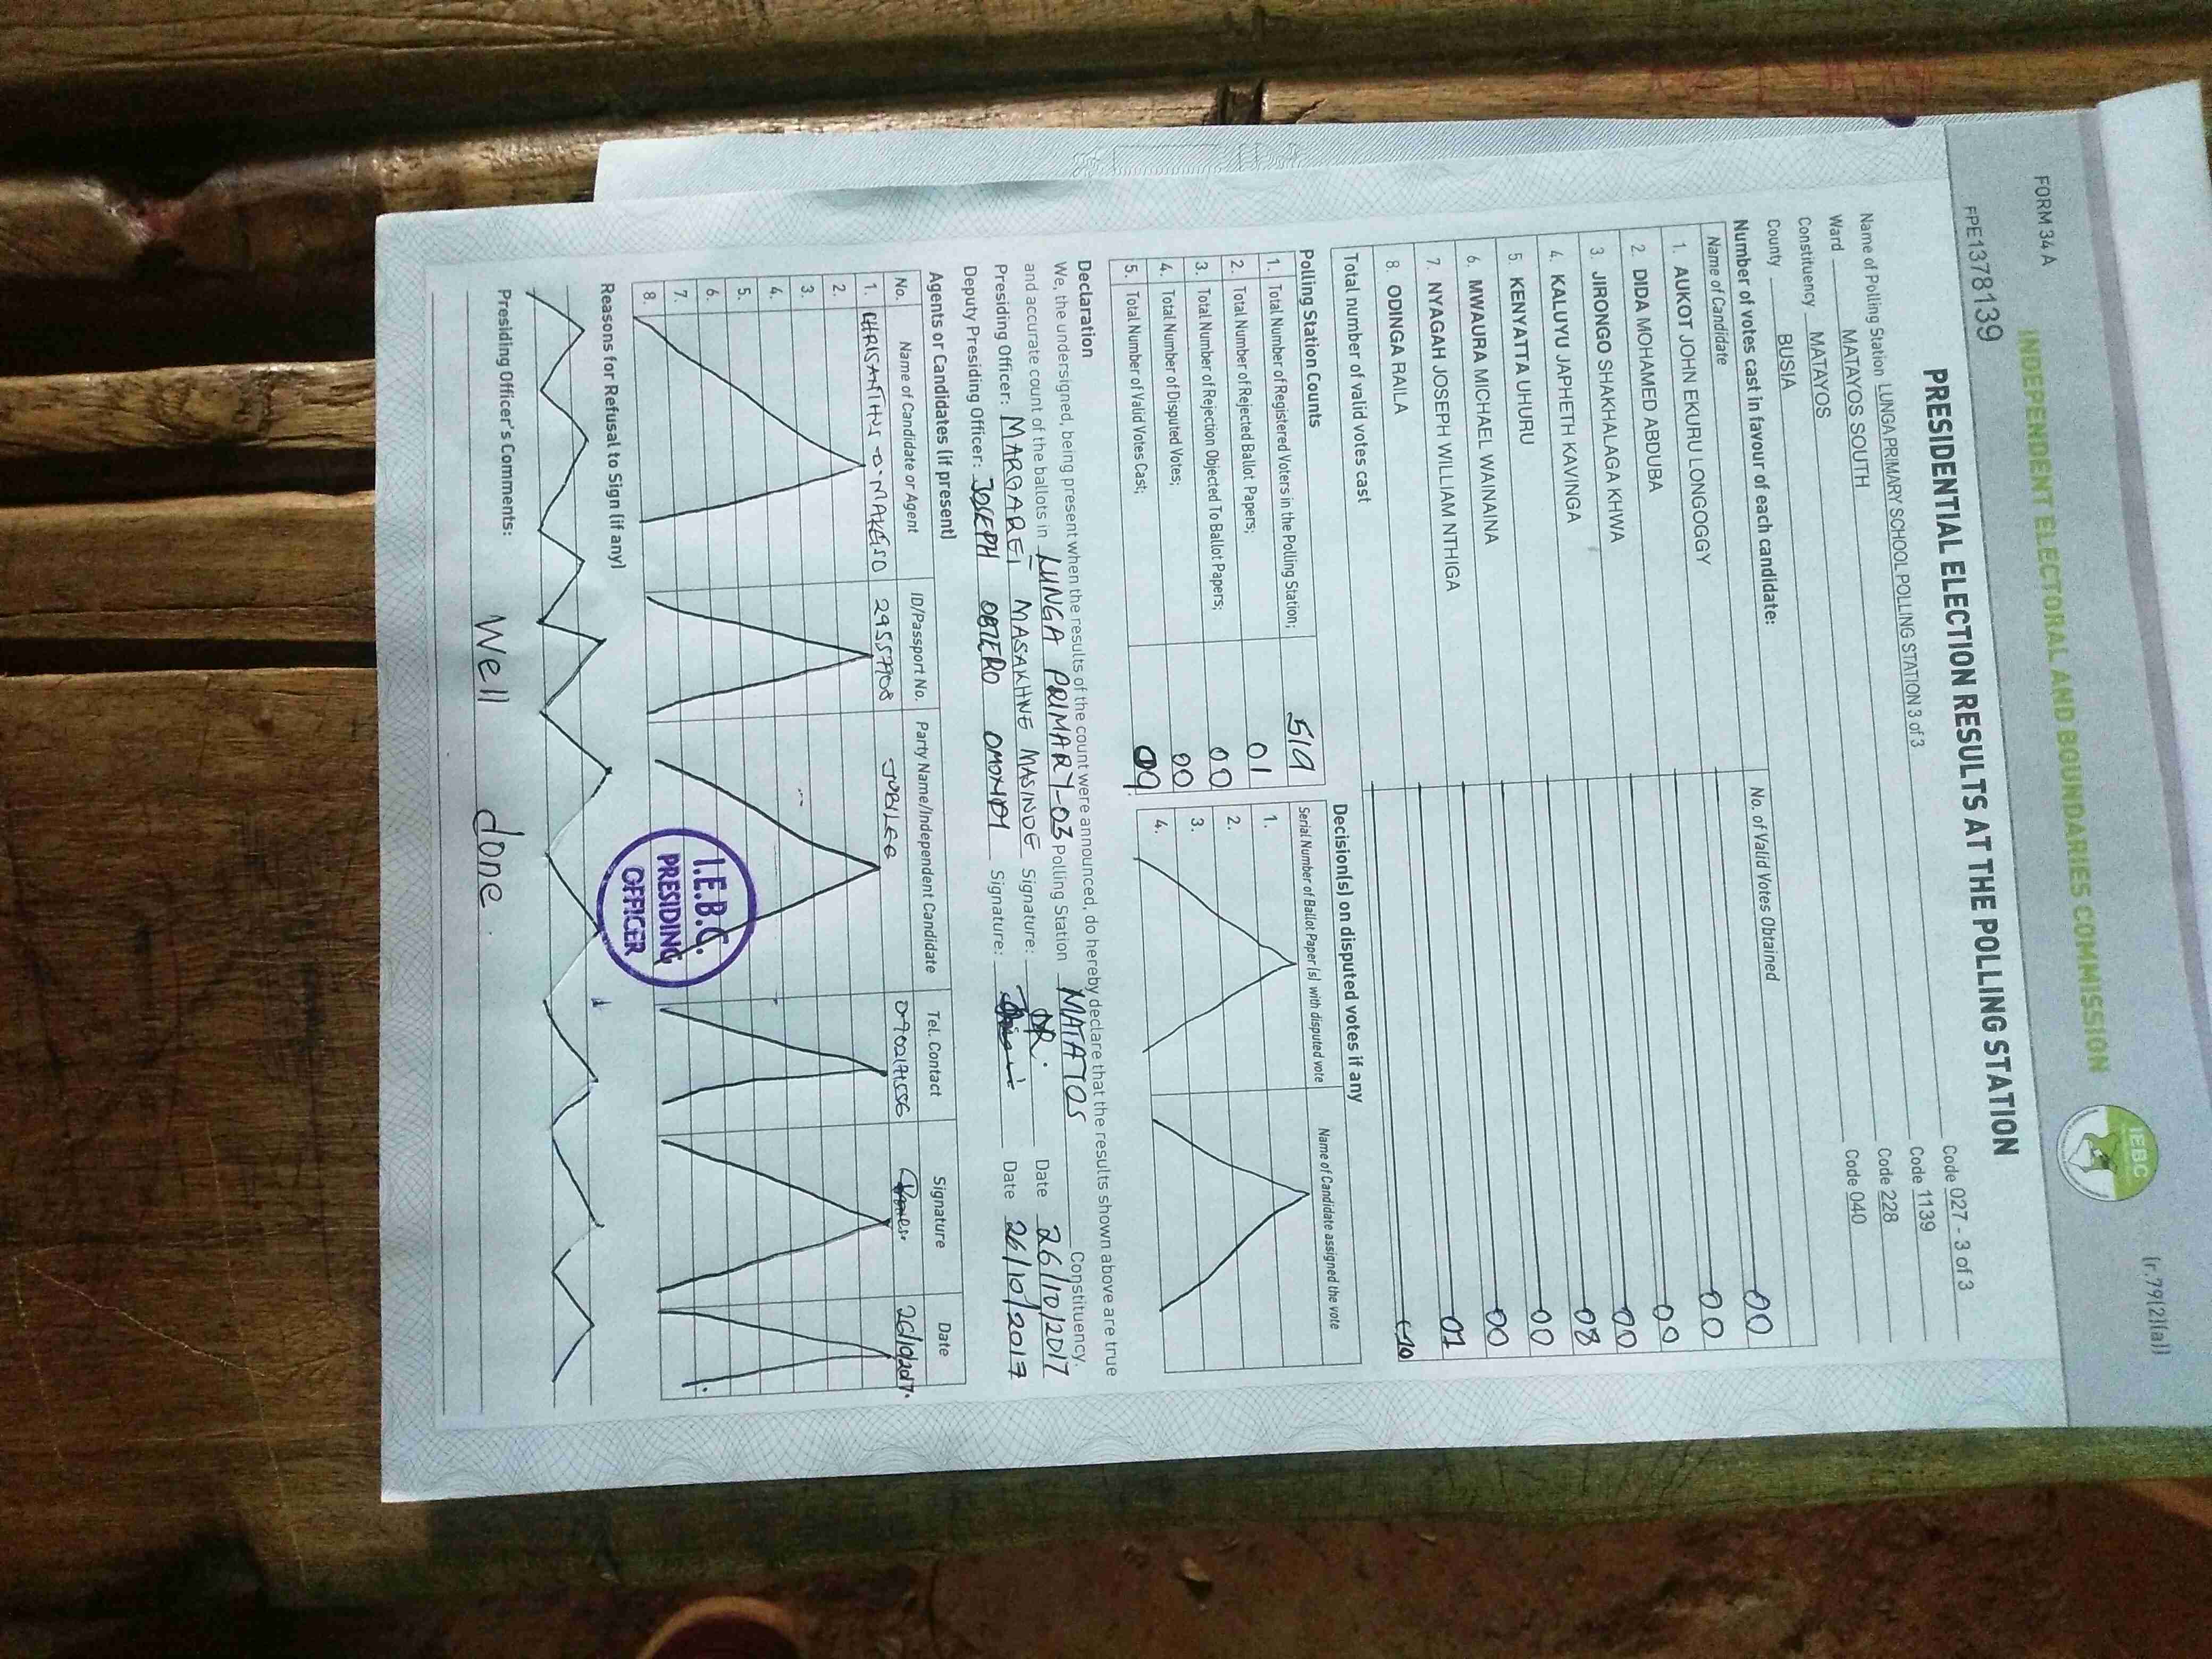 FORM 34 A
(r.79(2)(a))
INDEPENDENT ELECTORAL AND BOUNDARIES COMMISSION
IEBC
FPE1378139
PRESIDENTIAL ELECTION RESULTS AT THE POLLING STATION
Name of Polling Station LUNGA PRIMARY SCHOOL POLLING STATION 3 of 3 Code 027 - 3 of 3
Ward MATAYOS SOUTH Code 1139
Constituency MATAYOS Code 228
County BUSIA Code 040
Number of votes cast in favour of each candidate:
Name of Candidate No. of Valid Votes Obtained
1. AUKOT JOHN EKURU LONGOGGY 00
2. DIDA MOHAMED ABDUBA 00
3. JIRONGO SHAKHALAGA KHWA 00
4. KALUYU JAPHETH KAVINGA 00
5. KENYATTA UHURU 08
6. MWAURA MICHAEL WAINAINA 00
7. NYAGAH JOSEPH WILLIAM NTHIGA 00
8. ODINGA RAILA 01
Total number of valid votes cast
Polling Station Counts
1. Total Number of Registered Voters in the Polling Station; 519
2. Total Number of Rejected Ballot Papers; 01
3. Total Number of Rejection Objected To Ballot Papers; 00
4. Total Number of Disputed Votes; 00
5. Total Number of Valid Votes Cast; 09
Decision(s) on disputed votes if any
Serial Number of Ballot Paper (s) with disputed vote Name of Candidate assigned the vote
1.
2.
3.
4.
Declaration
We, the undersigned, being present when the results of the count were announced, do hereby declare that the results shown above are true
and accurate count of the ballots in LUNGA PRIMARY-03 Polling Station MATAYOS Constituency.
Presiding Officer: MARGARET MASAKHWE MASINDE Signature: Date 26/10/2017
Deputy Presiding Officer: JOSEPH OBIERO OMONDI Signature: Date 26/10/2017
Agents or Candidates (if present)
No. Name of Candidate or Agent ID/Passport No. Party Name/Independent Candidate Tel. Contact Signature Date
1. 29557708 JUBILEE 0702171556 26/10/2017.
2.
3.
4.
5.
6.
7.
8.
I.E.B.C.
PRESIDING
OFFICER
Reasons for Refusal to Sign (if any)
Presiding Officer's Comments:
Well done.